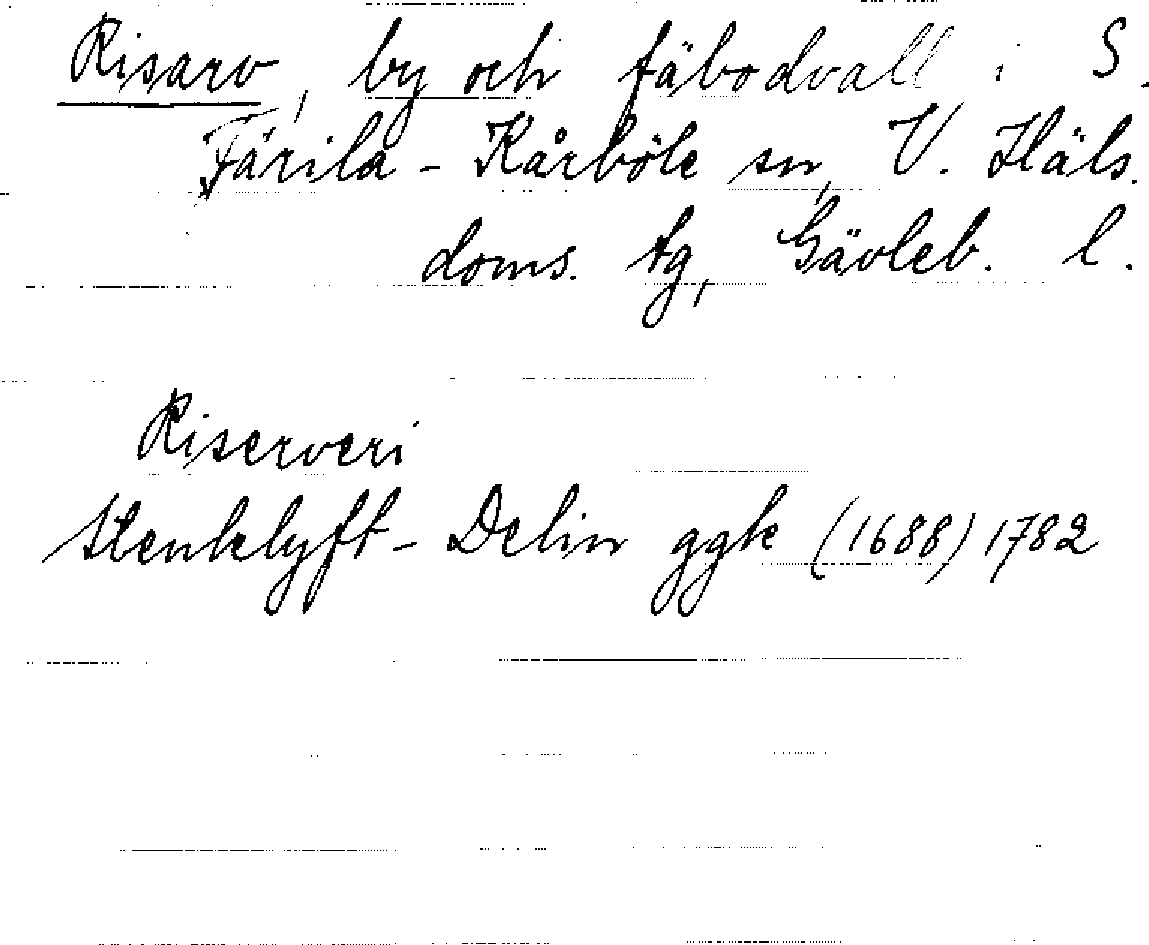 Risarv, by och fäbodvall i S.
Färila - Kårböle sn, V. Häls.
doms. tg, Gävleb. l.
Riserveri
Stenklyft - Delin ggk (1688) 1782